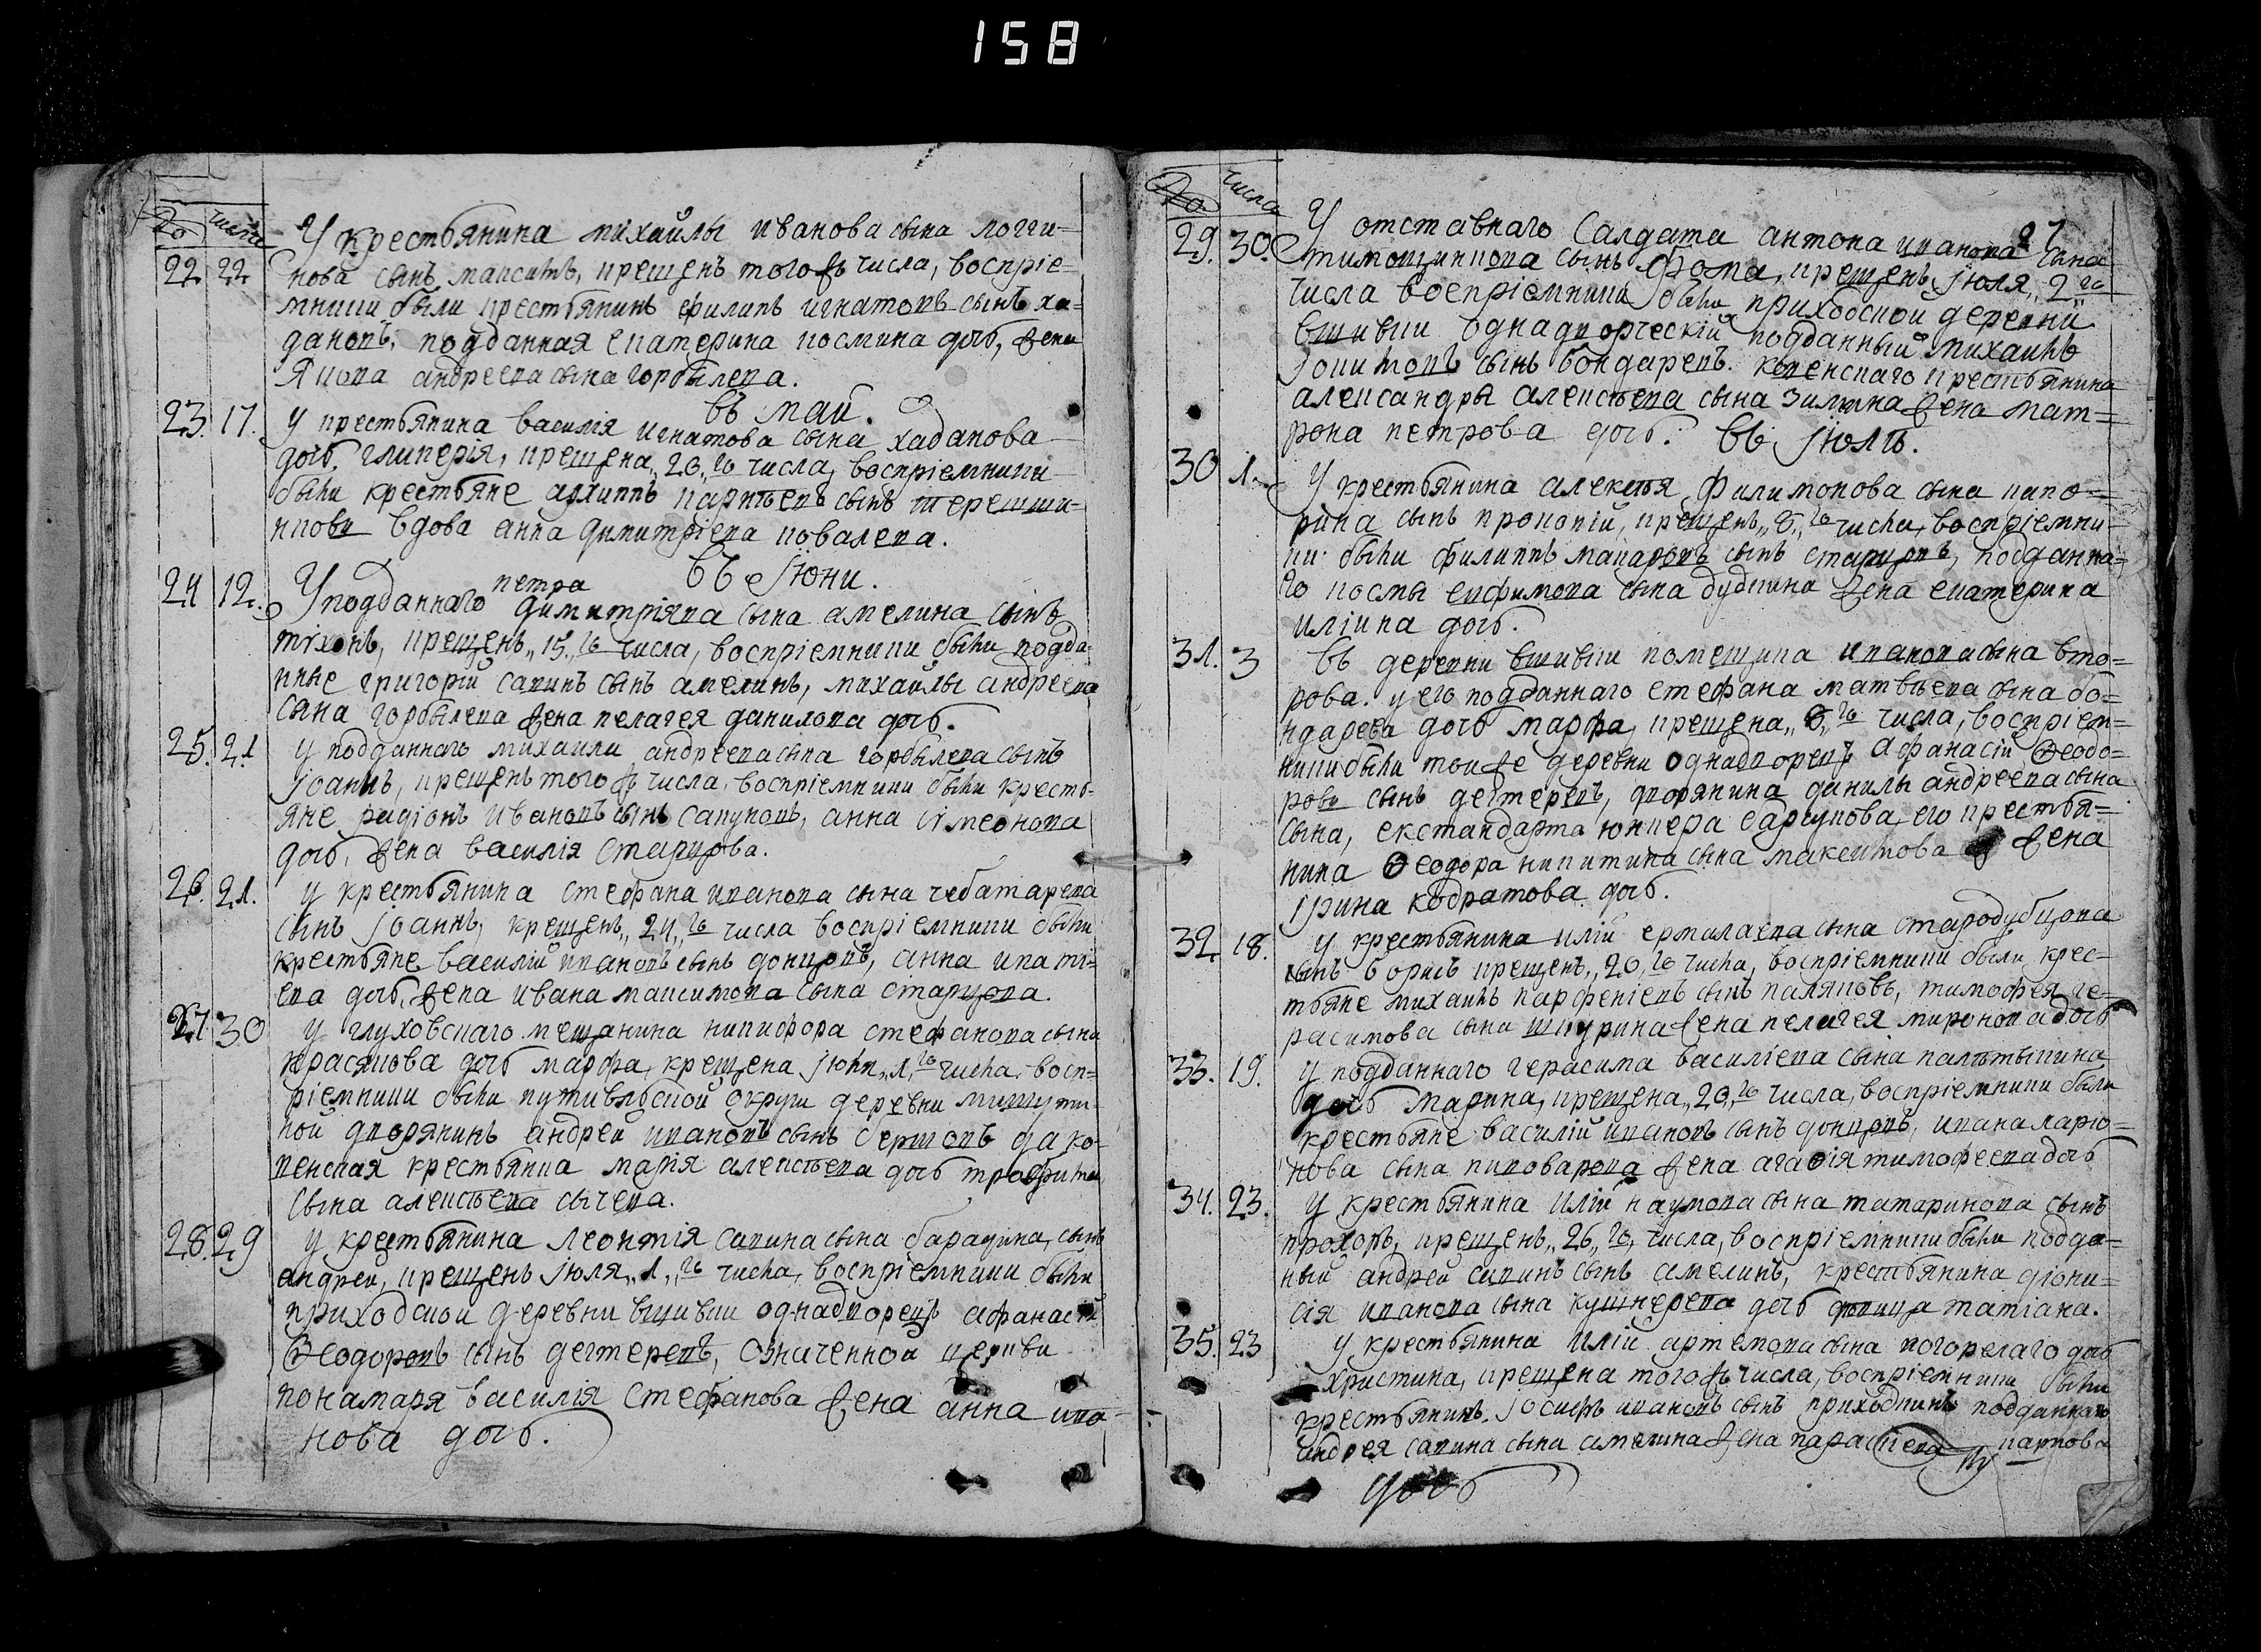 158
No числа
У крестьянина михайлы иванова сына логги-
22 22 нова сынъ максимъ, крещенъ того ж числа, воспріе-
мники были крестьянинъ филипъ игнатовъ сынъ ха-
дановъ, подданная екатерина космина дочь, жена
якова андреева сына горбылева.
въ маи.
23. 17. У крестьянина василія игнатова сына хаданова
дочь, гликерія, крещена „20„ го числа, воспріемники
были крестьяне архиппъ сынъ
вдова анна димитріева ковалева.
въ Iюни.
24 12. У подданнаго петра димитріява сына амелина сынъ
тіхонъ, крещенъ „15„ го числа, воспріемники были подда-
нные григорій савинъ сынъ амелинъ, михайлы андреева
сына горбылева жена пелагея данилова дочь.
25. 21 У подданнаго михаила андреева сына горбылева сынъ
Iоаннъ, крещенъ того ж числа, воспріемники были кресть-
яне радіонъ ивановъ сынъ сапуновъ, анна сімеонова
дочь, жена василія старцова.
26. 21. У крестьянина стефана иванова сына чебатарева
сынъ Iоаннъ, крещенъ „24„ го числа воспріемники были
крестьяне василій ивановъ сынъ донцовъ, анна ипаті-
ева дочь, жена ивана максимова сына старцова.
27 30 У глуховскаго мещанина никифора стефанова сына
красякова дочь марфа, крещена Iюля „1„ го числа. восп-
ріемники были путивльской округи деревни мишути-
ной дворянинъ андрей ивановъ сынъ бершовъ да ко-
ренская крестьянка марія алексѣева дочь трофима
сына алексѣева сычева.
28. 29 У крестьянина леонтія савина сына барадина, сынъ
андрей, крещенъ Iюля „1„ го числа, воспріемники были
приходской деревни вшивки однадворецъ афанасій
Ѳеодоровъ сынъ дегтеревъ, означенной церкви
понамаря василія стефанова жена анна ива-
нова дочь.
No числа
27
29. 30. У отставнаго Салдата антона иванова сына
тимошинкова сынъ фома, крещенъ Iюля „2„ го
числа воспріемники были приходской деревни
вшивки однадворческій подданный михаилъ
сынъ бондаревъ. крестьянина
александры алексѣева сына зимина жена мат-
рона петрова дочь.
въ Iюлѣ.
30 1. У крестьянина алексѣя филимонова сына
рина сынъ прокопій, крещенъ „6„ го числа, воспріемни-
ки были филиппъ макаровъ сынъ старцовъ, подданна-
го космы евфимова сына будкина жена екатерина
иліина дочь.
31. 3 въ деревни вшивки помещика иванова сына вто-
рова. у его подданнаго стефана матвѣева сына бо-
ндарева дочь марфа, крещена, „6„ го числа, воспріем-
ники были тои же деревни однадворецъ афанасій Ѳеодо-
ровъ сынъ дегтеревъ, дворянина данилы андреева сына
сына, екстандарта юнкера барсукова его крестья-
нина Ѳеодора никитина сына максимова жена
Iрина кодратова дочь.
32. 18. У крестьянина иліи ермилаева сына стародубцова
сынъ борисъ крещенъ, „20„ го числа, воспріемники были крес-
тьяне михаилъ парфеніевъ сынъ паляковъ, тимофея ге-
расимова сына шкурина жена пелагея миронова дочь
33. 19. У подданнаго герасима василіева сына
дочь марина, крещена, „20„ го числа, воспріемники были
крестьяне василій ивановъ сынъ донцовъ, ивана ларіо-
нова сына пивоварова жена агаѳія тимофеева дочь
34. 23. У крестьянина иліи наумова сына татаринова сынъ
прохоръ, крещенъ, „26„ го, числа, воспріемники были подда-
ный андрей савинъ сынъ амелинъ, крестьянина діони-
сія иванова сына кушнерева дочь девица татіана.
35. 23 У крестьянина иліи артемова сына погорелаго дочь
христина, крещена того ж числа, воспріемники были
крестьянинъ Iосифъ ивановъ сынъ приходкинъ подданнаго
андрея савина сына амелина жена параскева карпова
дочь